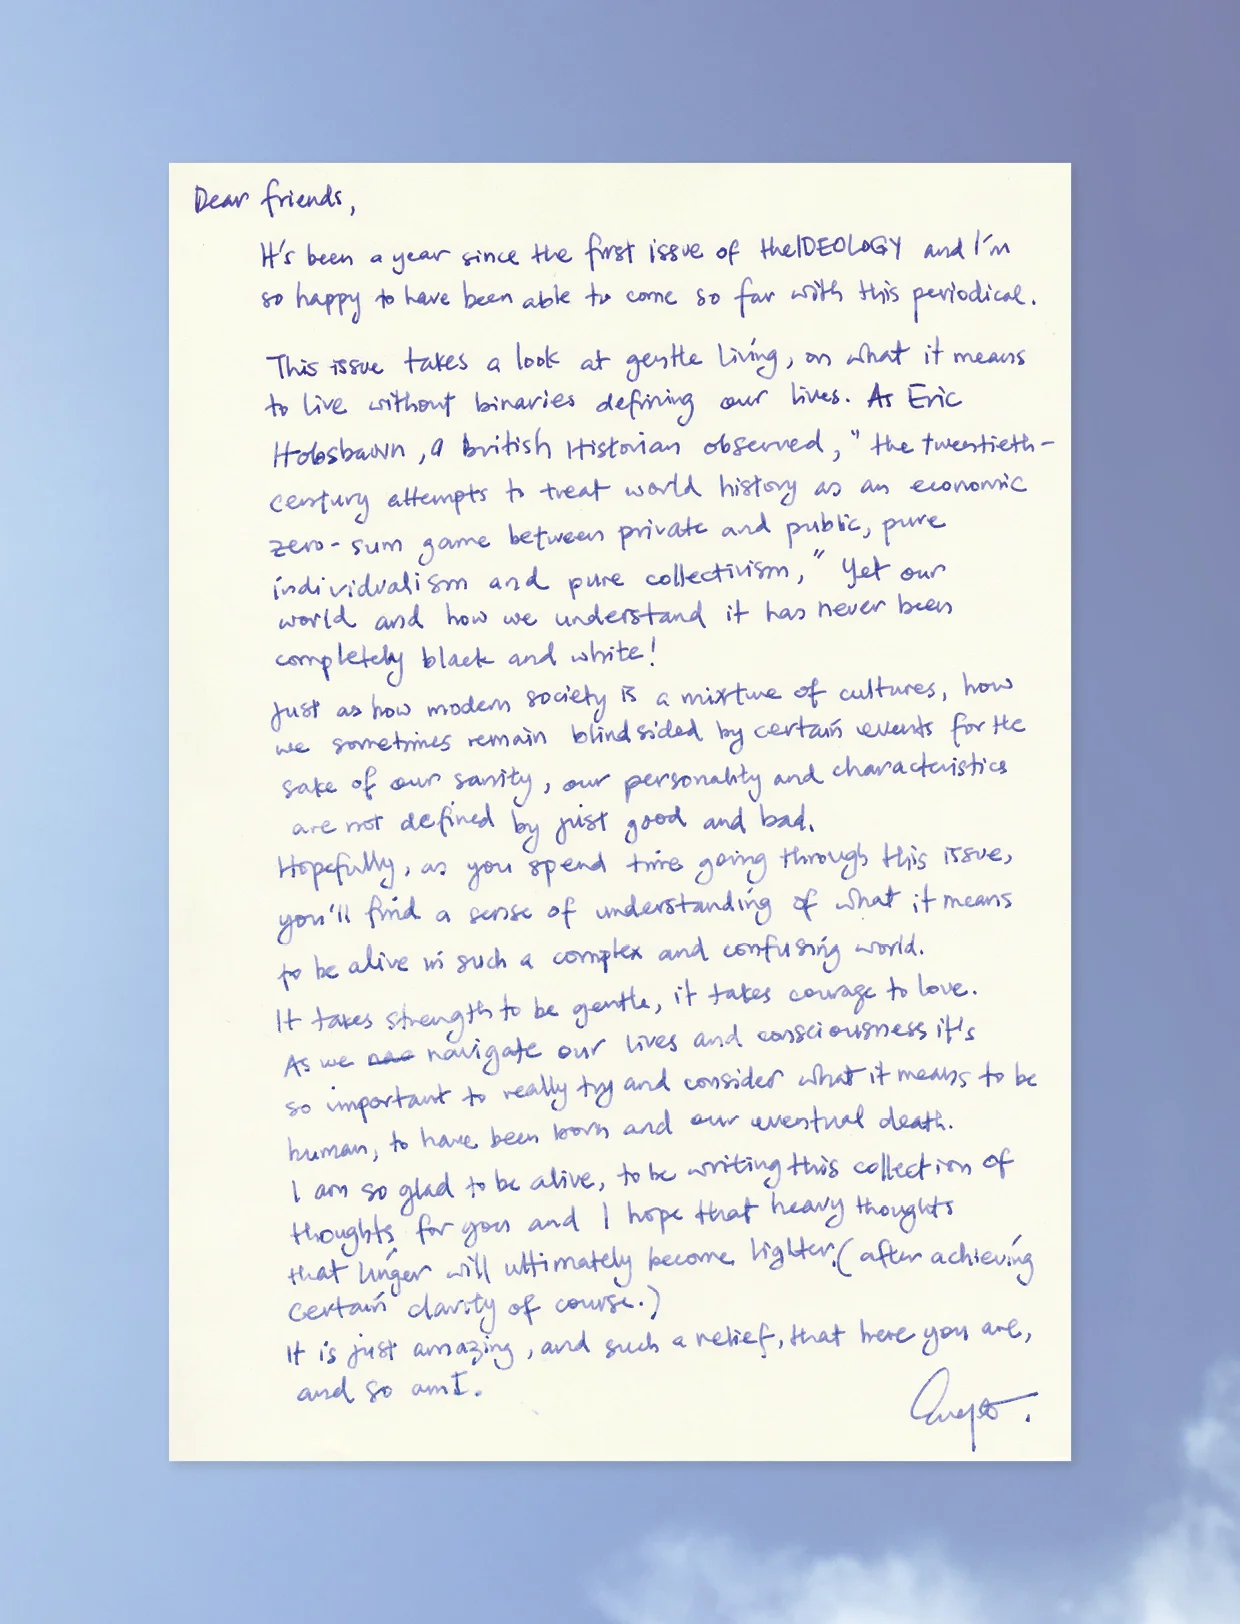 Dear friends,
It's been a year since the first issue of theIDEOLOGY and I'm
so happy to have been able to come so far with this periodical.
This issue takes a look at gentle living, on what it means
to live without binaries defining our lives. As Eric
Hobsbawn, a british Historian observed, "the twentieth-
century attempts to treat world history as an economic
zero-sum game between private and public, pure
individualism and pure collectivism," Yet our
world and how we understand it has never been
completely black and white!
Just as how modern society is a mixture of cultures, how
we sometimes remain blindsided by certain events for the
sake of our sanity, our personality and characteristics
are not defined by just good and bad.
Hopefully, as you spend time going through this issue,
you'll find a sense of understanding of what it means
to be alive in such a complex and confusing world.
It takes strength to be gentle, it takes courage to love.
As we navigate our lives and consciousness it's
so important to really try and consider what it means to be
human, to have been born and our eventual death.
I am so glad to be alive, to be writing this collection of
thoughts for you and I hope that heavy thoughts
that linger will ultimately become lighter. (after achieving
certain clarity of course.)
It is just amazing, and such a relief, that here you are,
and so am I.